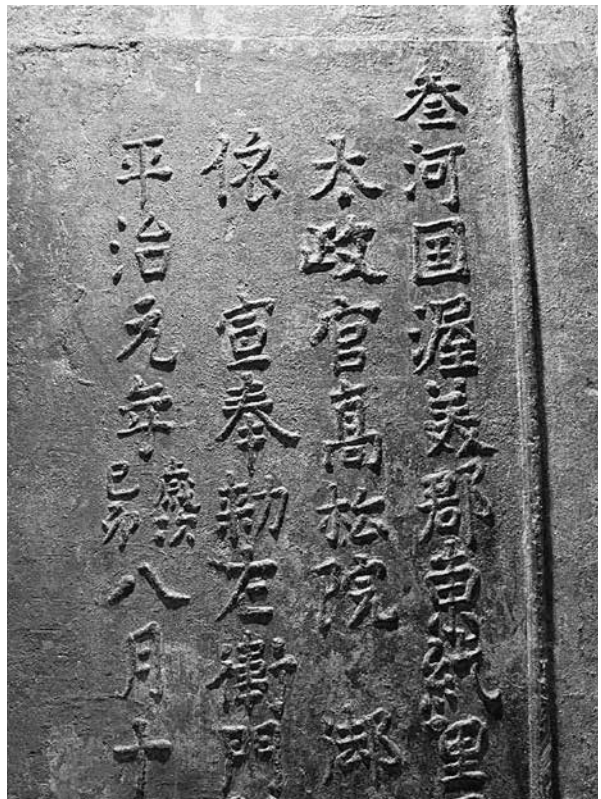 叁河国渥美郡東紀里
太政官高松院 御
依 宣奉勅左衛門
平治元年歳次己卯八月十